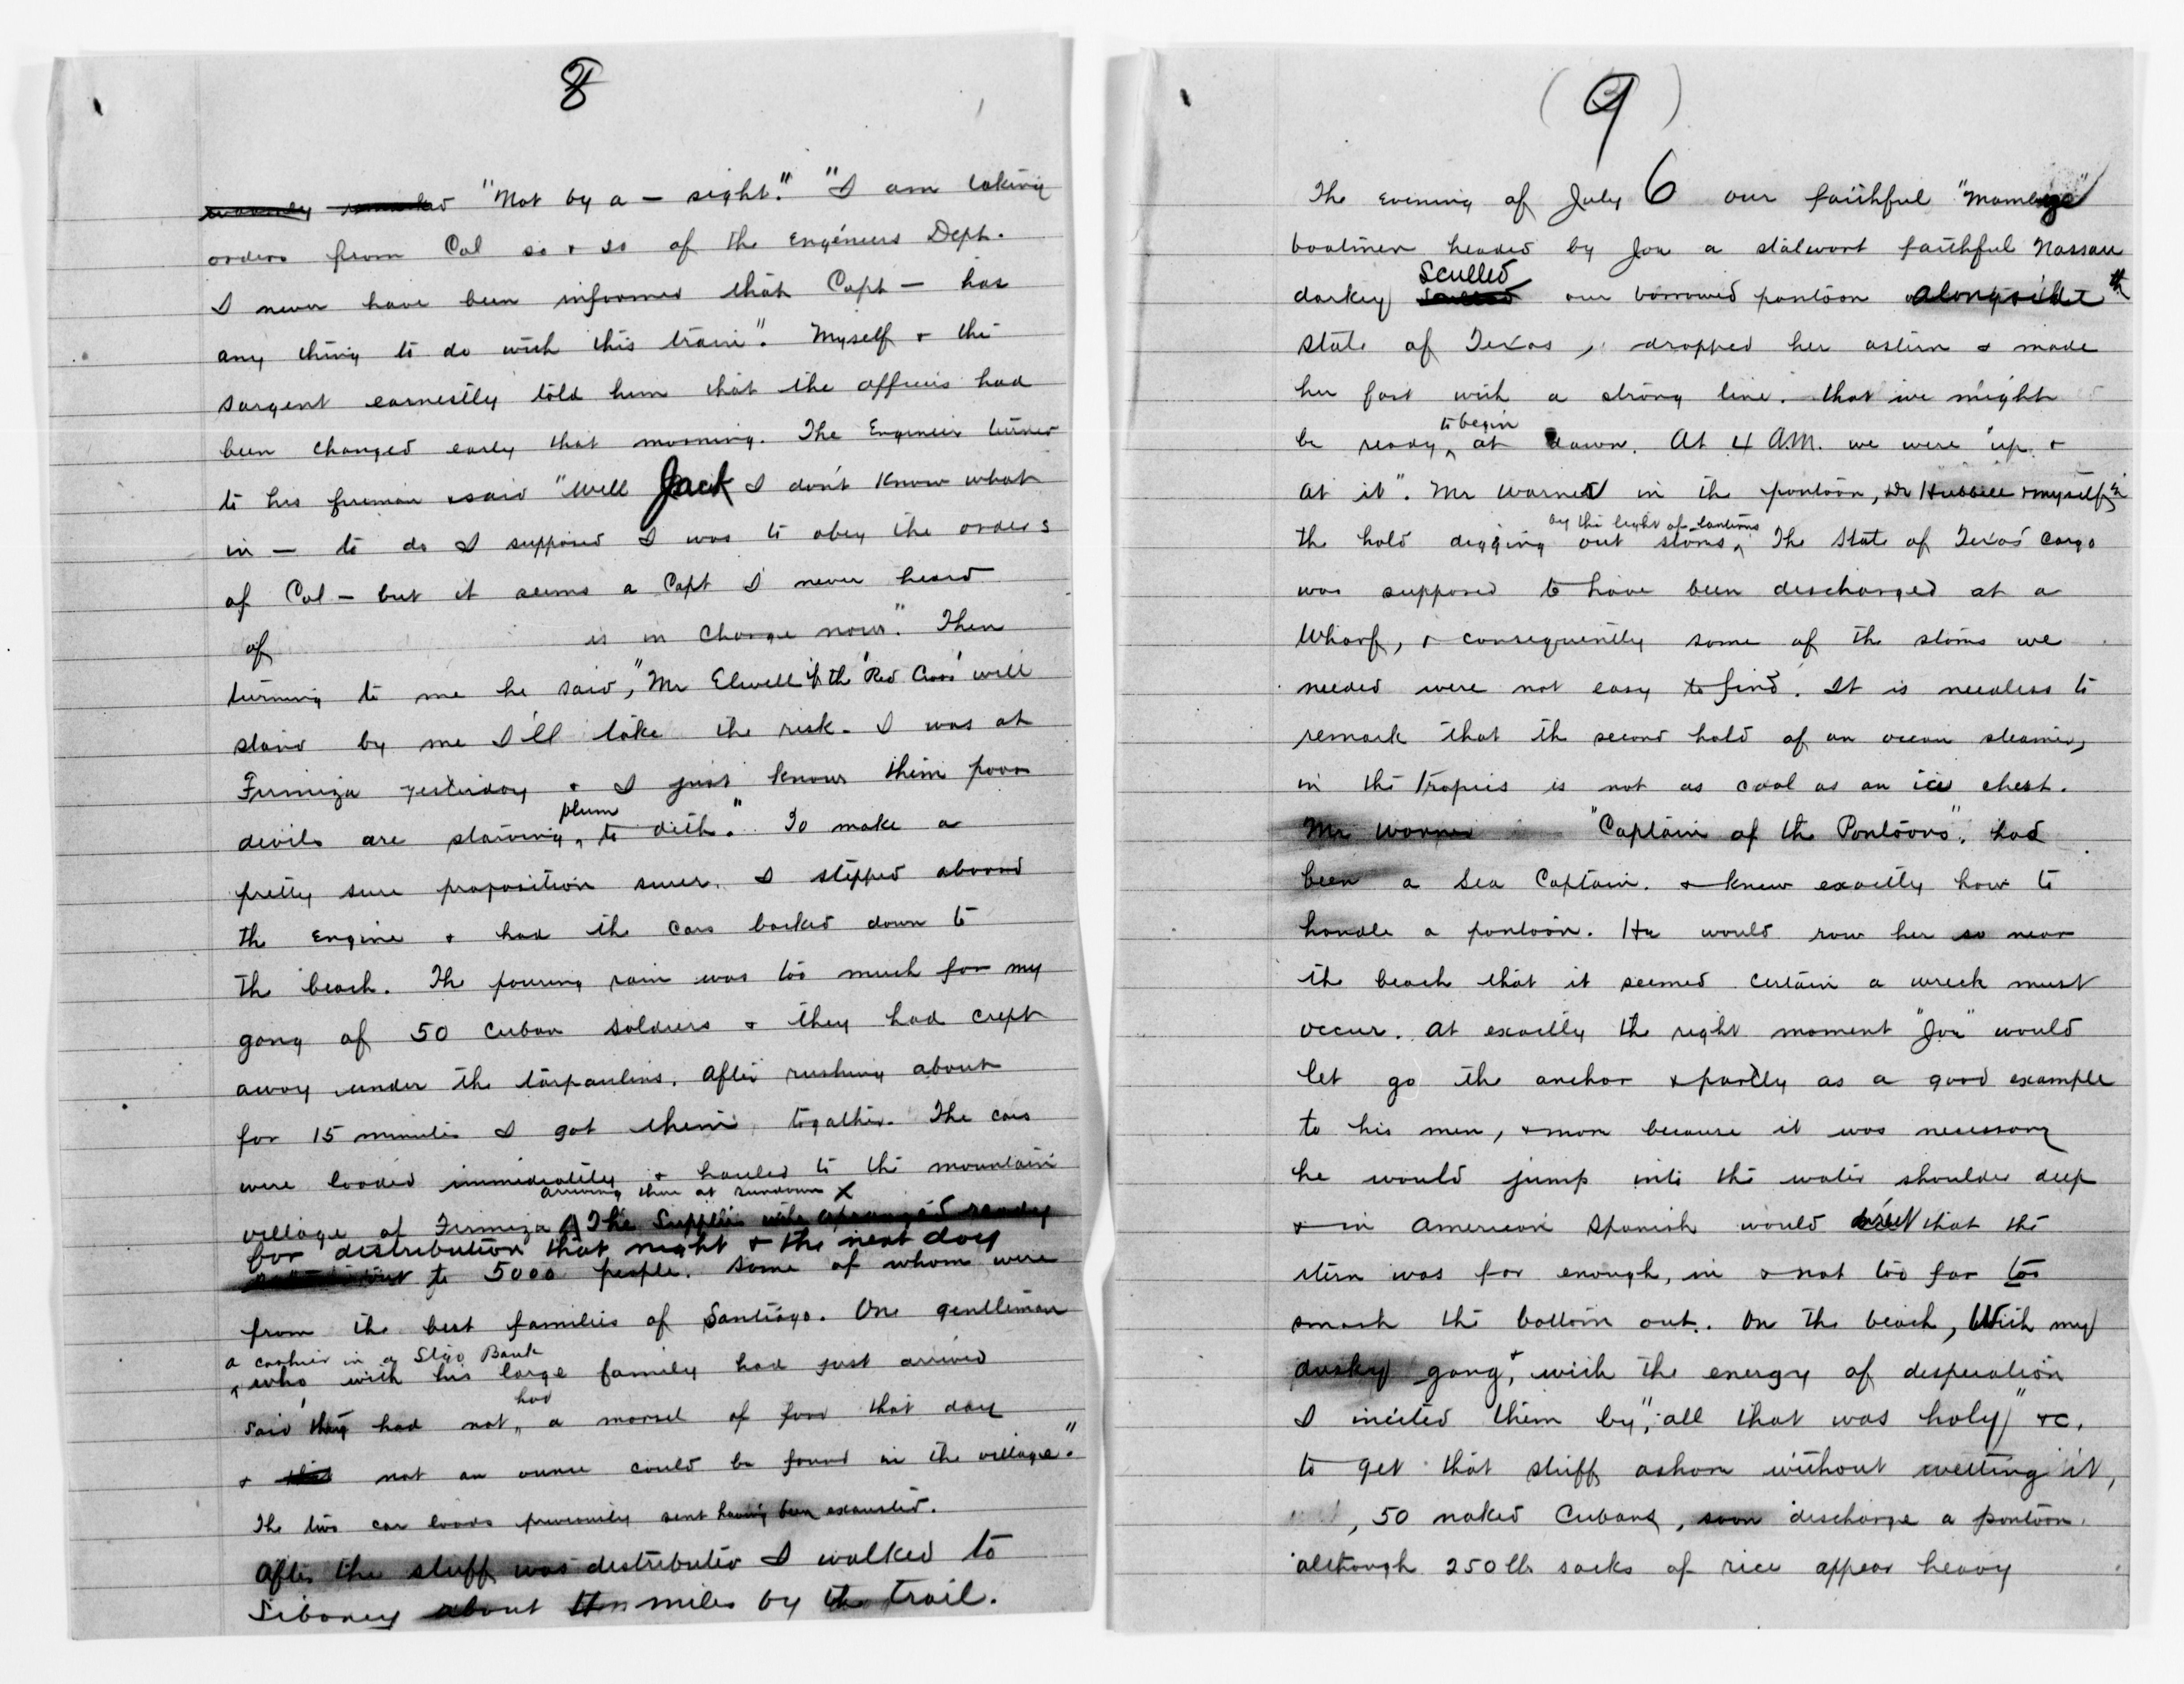 8
"Not by a — sight." "I am taking
orders from Col so & so of the Engineers Dept.
I never have been informed that Capt — has
any thing to do with this train". Myself & the
sargent earnestly told him that the officers had
been changed early that morning. The Engineer turned
to his fireman & said "Well Jack I don't know what
in — to do I supposed I was to obey the orders
of Col — but it seems a Capt I never heard
of is in charge now." Then
turning to me he said, "Mr Elwell if the 'Red Cross' will
stand by me I'll take the risk. I was at
Firmiza yesterday & I just knows them poor
plum
devils are starving to deth." To make a
pretty sure proposition surer, I stepped aboard
the Engine & had the cars backed down to
the beach. The pouring rain was too much for my
gang of 50 Cuban soldiers & they had crept
away under the tarpaulins. After rushing about
for 15 minutes I got them together. The cars
were loaded immediately & hauled to the mountain
arriving there at sundown X
village of Firmiza The Supplies were arranged ready
for distribution that night & the next day
to 5000 people. Some of whom were
from the best families of Santiago. One gentleman
a cashier in a Stgo Bank
who with his large family had just arrived
had
said 'they had not a morsel of food that day
& not an ounce could be found in the village."
The two car loads previously sent having been exhausted.
After the stuff was distributed I walked to
Siboney about ten miles by the trail.
(9)
The Evening of July 6 our faithful "Mambye"
boatmen headed by Joe a stalwart faithful Nassau
Sculled
darkey our borrowed pontoon alongside the
State of Texas, dropped her astern & made
her fast with a strong line. that we might
to begin
be ready at dawn. At 4 A.M. we were "up &
at it". Mr Warner in the pontoon, Dr Hubbell & myself in
by the light of lanterns
the hold digging out stores, The State of Texas' cargo
was supposed to have been discharged at a
Wharf, & consequently some of the stores we
needed were not easy to find. It is needless to
remark that the second hold of an ocean steamer,
in the tropics is not as cool as an ice chest.
Mr Warner "Captain of the Pontoons", had
been a Sea Captain. & knew exactly how to
handle a pontoon. He would row her so near
the beach that it seemed certain a wreck must
occur. At exactly the right moment "Joe" would
let go the anchor & partly as a good example
to his men, & more because it was necessary
he would jump into the water shoulder deep
& in American Spanish would direct that the
stern was far enough, in & not too far to
smash the bottom out. On the beach, With my
dusky gang, & with the energy of desperation
I incited them by, "all that was holy" &c.
to get that stuff ashore without wetting it,
, 50 naked Cubans, soon discharge a pontoon.
although 250 lb sacks of rice appear heavy